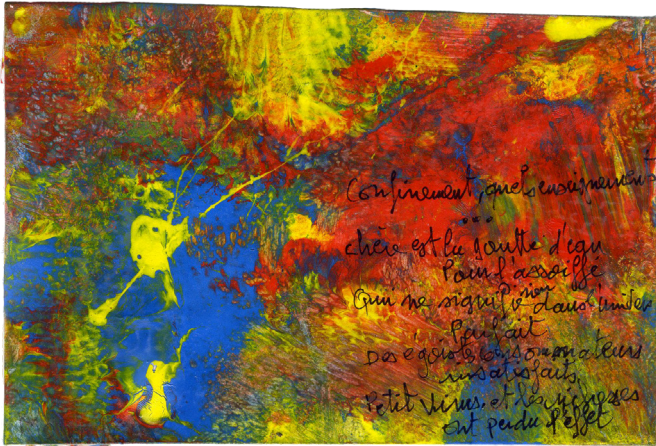 Confinement, quels enseignements
...
Chère est la goutte d'eau
Pour l'assoiffé
Qui ne signifie rien dans l'univers
Parfait
Des égoïstes consommateurs
insatisfaits.
Petit virus, et les richesses
ont perdu l'effet